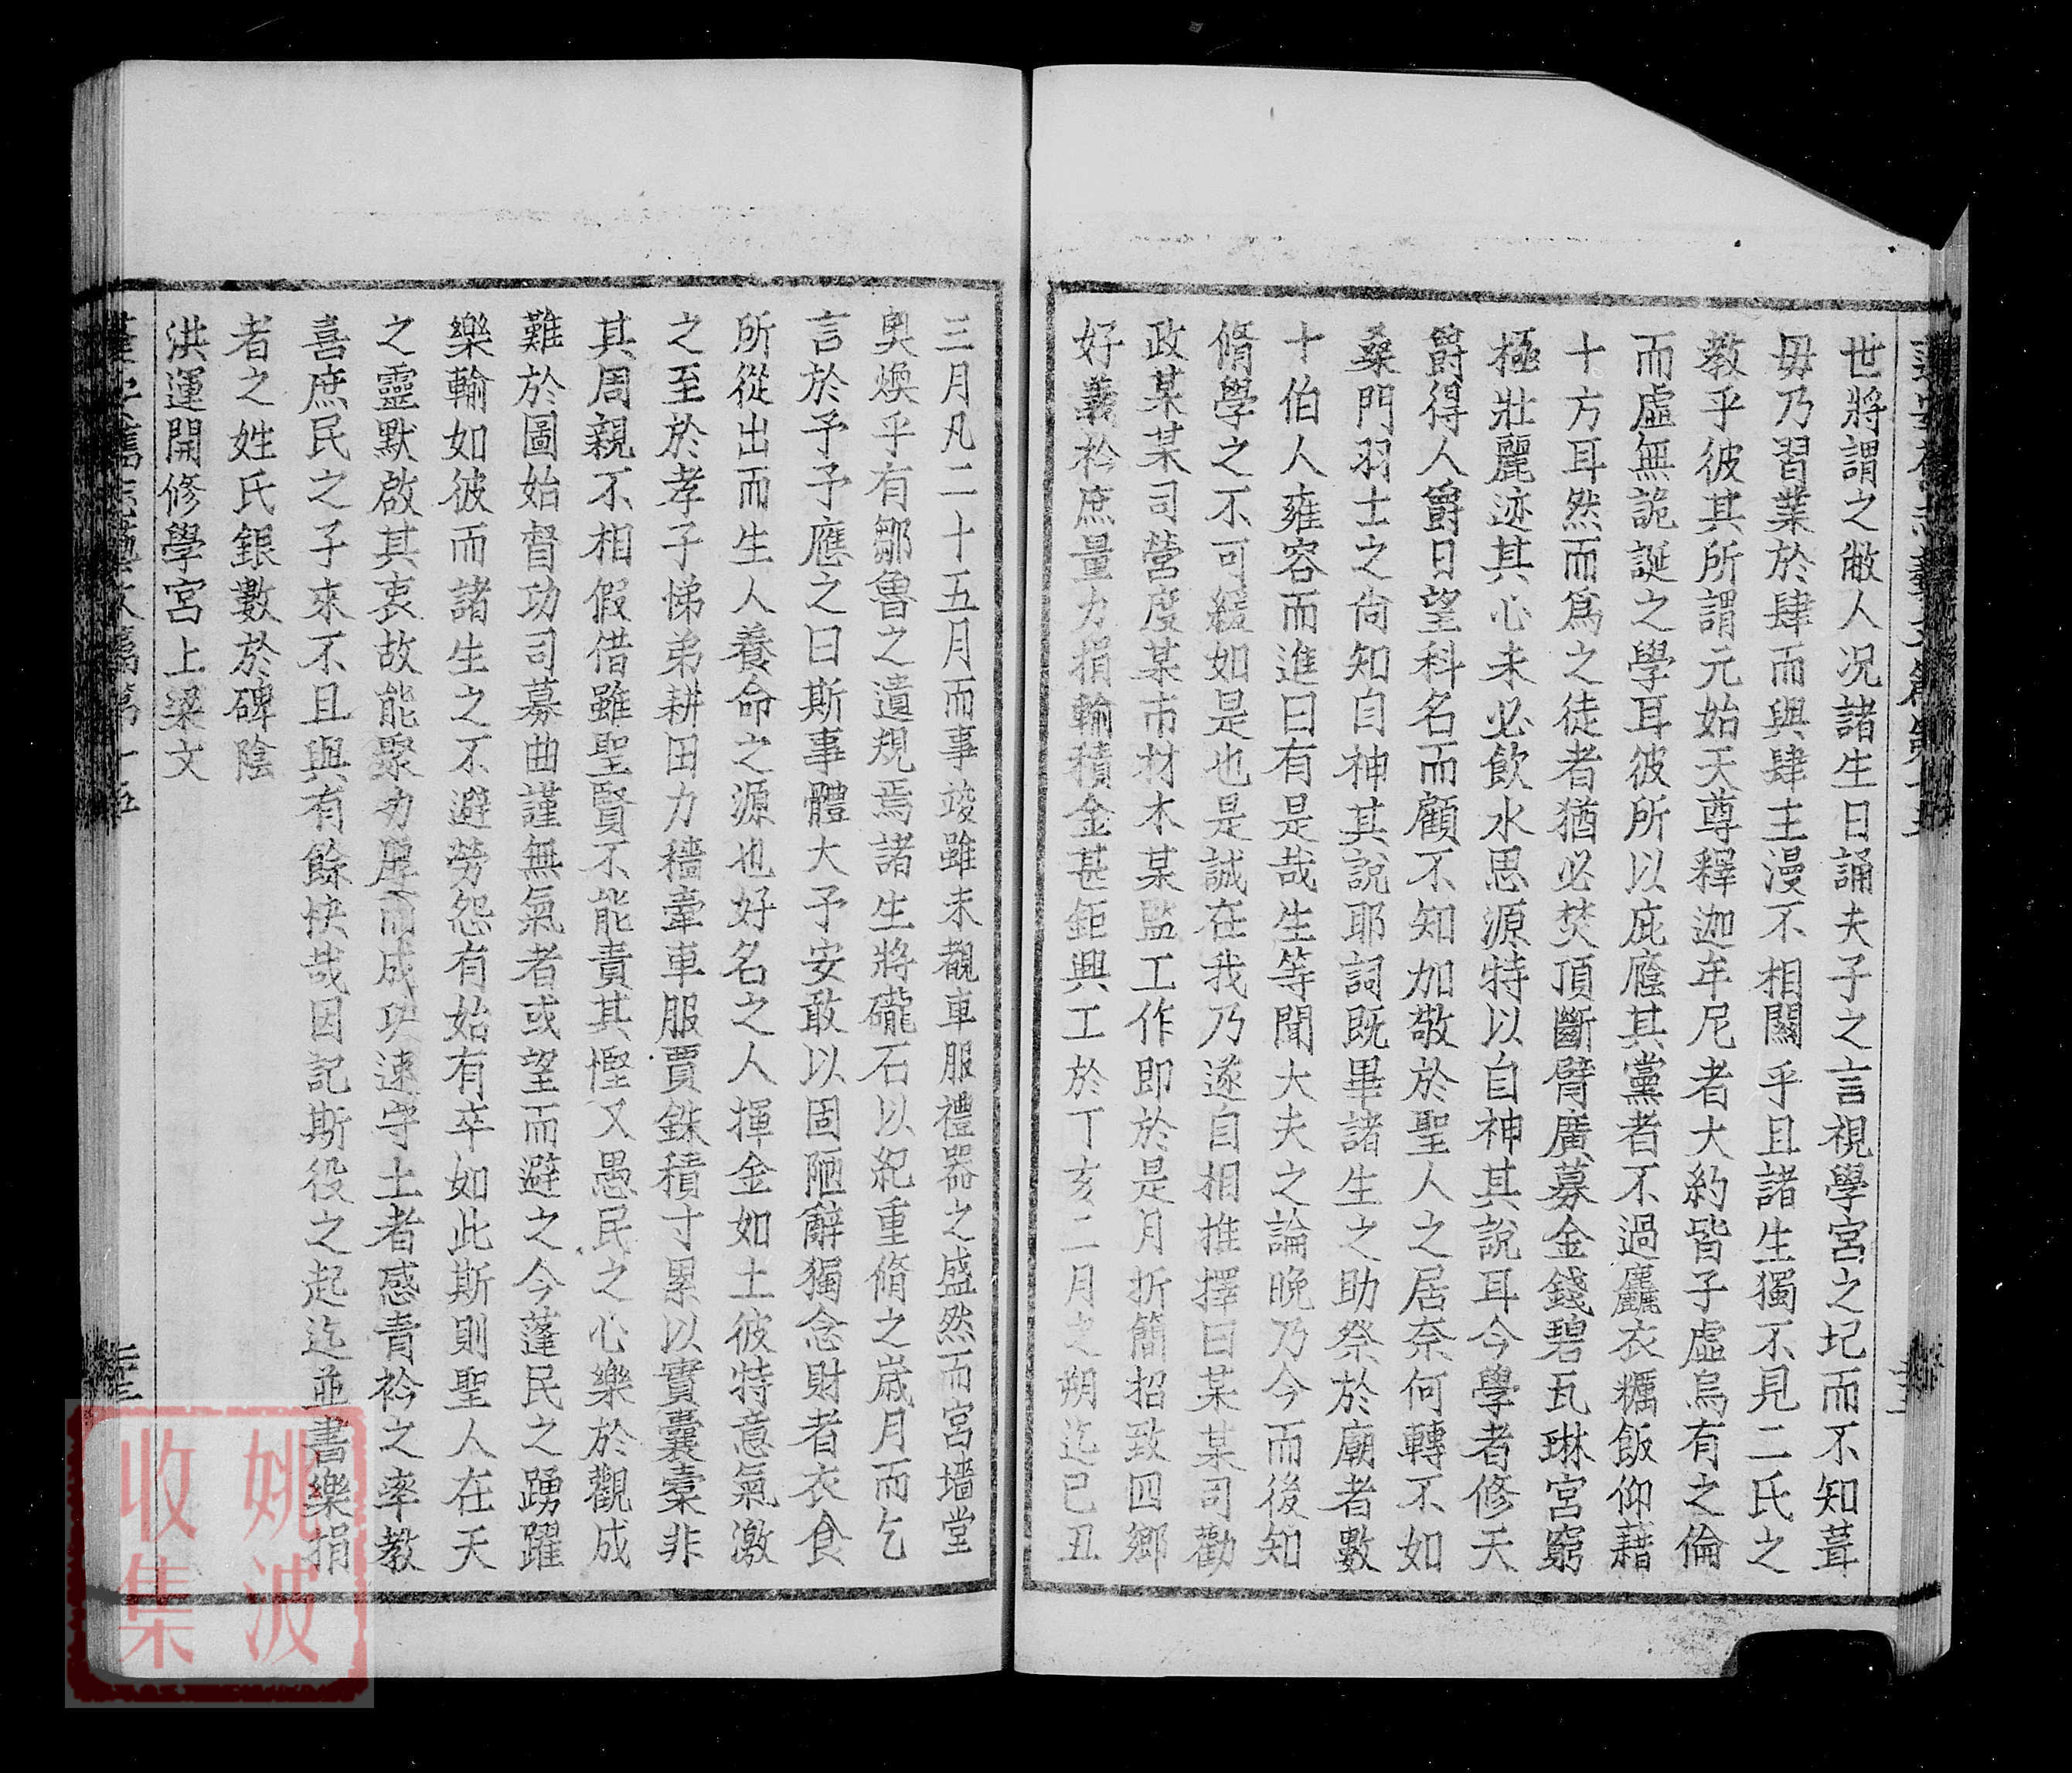 世將謂之敝人况諸生日誦夫子之言視學宮之圮而不知葺
毋乃習業於肆而與肆主漫不相關乎且諸生獨不見二氏之
教乎彼其所謂元始天尊釋迦牟尼者大約皆子虛烏有之倫
而虛無詭誕之學耳彼所以庇廕其黨者不過麤衣糲飯仰藉
十方耳然而爲之徒者猶必焚頂斷臂廣募金錢碧瓦琳宮窮
極壯麗迹其心未必飲水思源特以自神其說耳今學者修天
爵得人爵日望科名而顧不知加敬於聖人之居奈何轉不如
桑門羽士之尚知自神其說耶詞既畢諸生之助祭於廟者數
十伯人雍容而進曰有是哉生等聞大夫之論晚乃今而後知
脩學之不可緩如是也是誠在我乃遂自相推擇曰某某司勸
政某某司營度某市材木某監工作即於是月折簡招致四鄉
好義衿庶量力捐輸積金甚鉅興工於丁亥二月之朔迄已丑
三月凡二十五月而事竣雖未覩車服禮器之盛然而宮墻堂
奥煥乎有鄒魯之遺規焉諸生將礲石以紀重脩之嵗月而乞
言於予予應之曰斯事體大予安敢以固陋辭獨念財者衣食
所從出而生人養命之源也好名之人揮金如土彼特意氣激
之至於孝子悌弟耕田力穡牽車服賈銖積寸累以實囊橐非
其周親不相假借雖聖賢不能責其慳又愚民之心樂於觀成
難於圖始督功司募曲謹無氣者或望而避之今蓬民之踴躍
樂輸如彼而諸生之不避勞怨有始有卒如此斯則聖人在天
之靈默啟其衷故能聚力犀而成功速守土者感青衿之率教
喜庶民之子來不且與有餘快哉因記斯役之起迄並書樂捐
者之姓氏銀數於碑陰
洪運開修學宮上梁文
姚波
收集